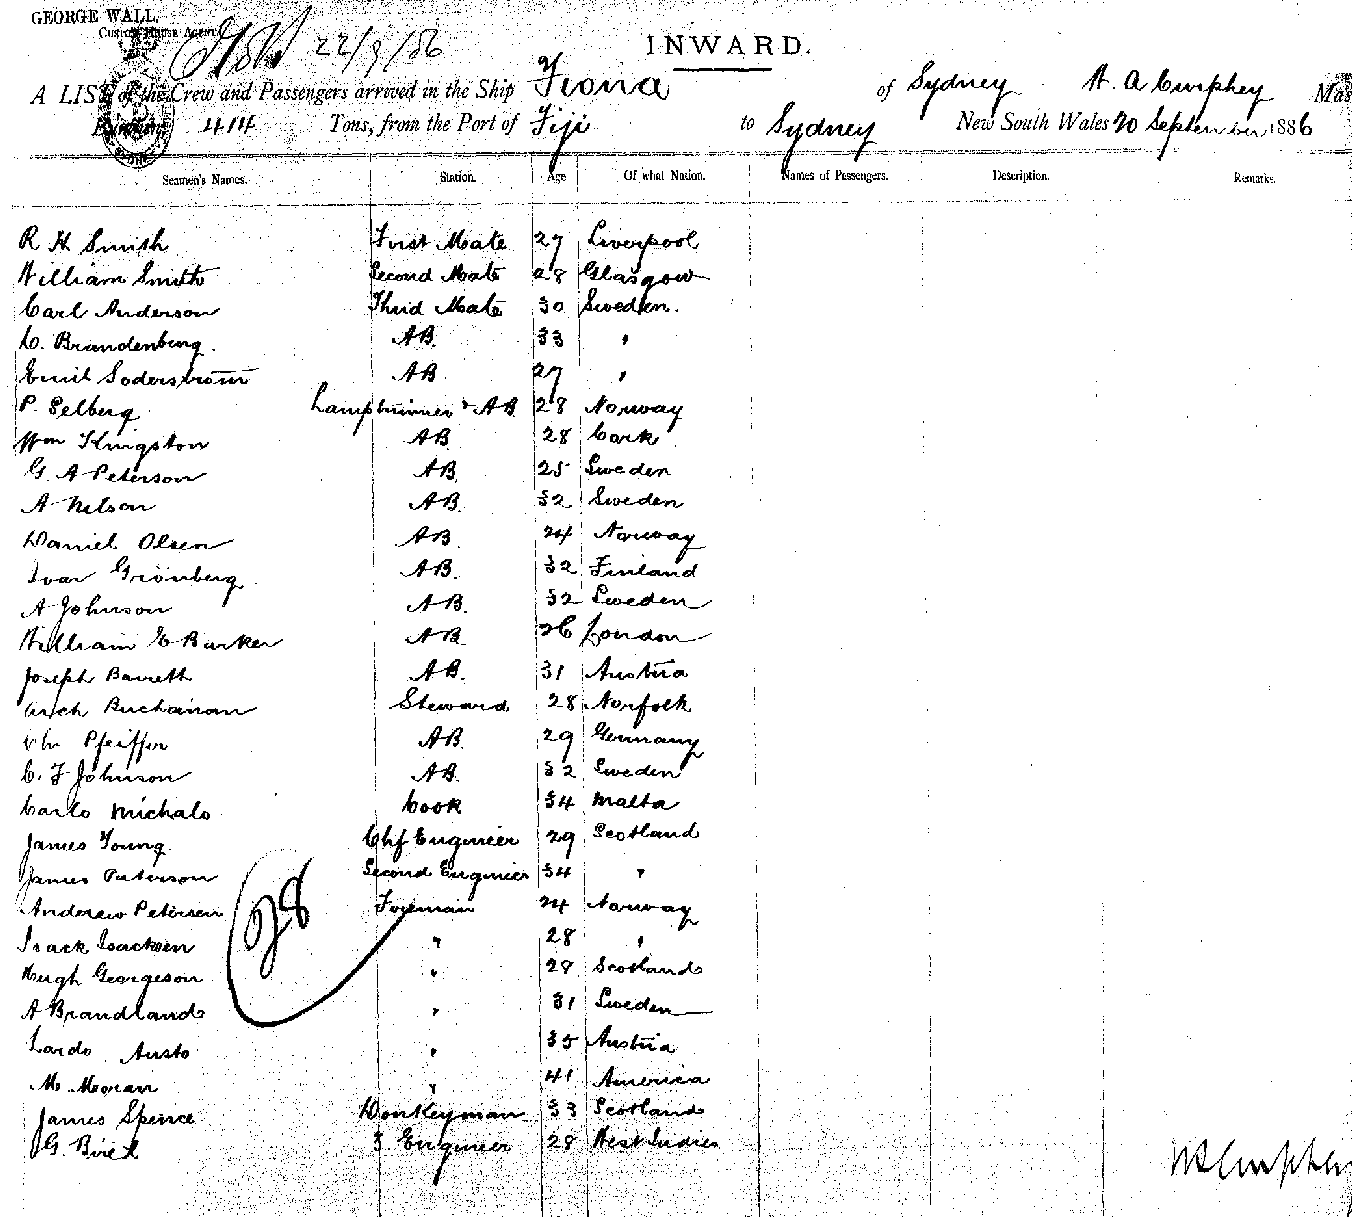 GEORGE WALL,
Custom House Agent
22/9/86
INWARD.
A LIST of the Crew and Passengers arrived in the Ship Fiona of Sydney
Burthen 414 Tons, from the Port of Fiji to Sydney New South Wales 20 September 1886
Seamen's Names. Station. Age Of what Nation. Names of Passengers. Description. Remarks.
R H Smith First Mate 27 Liverpool
William Smith Second Mate 28 Glasgow
Carl Anderson Third Mate 30 Sweden.
C. Brandenburg. AB. 33 "
Emil Soderstrom AB 27 "
P. Selberg Lamptrimmer & AB 28 Norway
Wm Kingston AB 28 Cork
G A Peterson AB. 25 Sweden
A Nelson AB. 32 Sweden
Daniel Olsen AB. 24 Norway
Ivar Grönberg AB. 32 Finland
A Johnson AB. 32 Sweden
William E Barker AB 26 London
Joseph Barrett AB. 31 Austria
Arch Buchanan Steward 28 Norfolk
Pfeiffer AB. 29 Germany
C. F Johnson AB. 32 Sweden
Carlo Michalo Cook 34 Malta
James Young. Chf Engineer 29 Scotland
James Paterson Second Engineer 34 "
Andrew Petersen Foreman 24 Norway
28
Isack Isacksen " 28 "
Hugh Georgeson " 28 Scotland
A Brandland " 31 Sweden
Lardo Austo " 35 Austria
M. Moran " 41 America
James Spence Donkeyman 33 Scotland
G. Bird 3 Engineer 28 West Indies